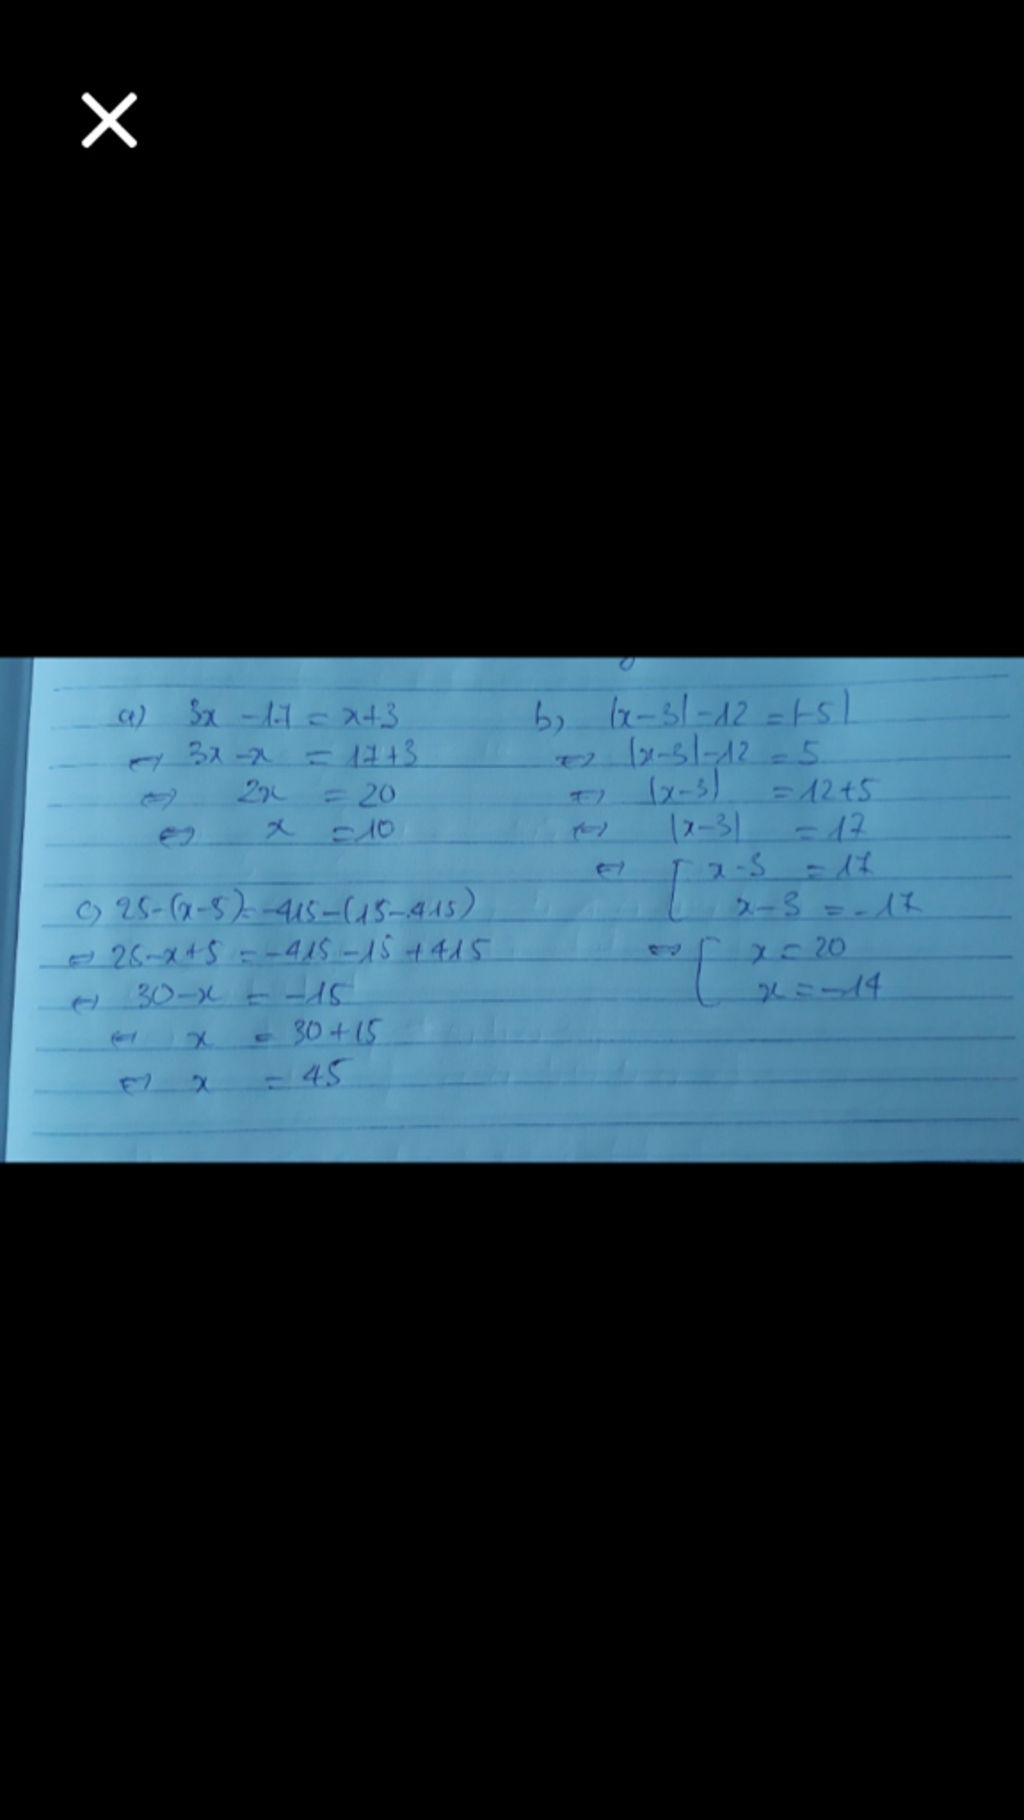 a) 3x - 17 = x+3
⇔ 3x - x = 17+3
⇔ 2x = 20
⇔ x = 10
b) |x-3| - 12 = |-5|
⇔ |x-3| - 12 = 5
⇔ |x-3| = 12+5
⇔ |x-3| = 17
⇔ [ x-3 = 17
x-3 = -17
⇔ [ x = 20
x = -14
c) 25-(x-5) = -415-(15-415)
⇔ 25-x+5 = -415-15+415
⇔ 30-x = -15
⇔ x = 30+15
⇔ x = 45